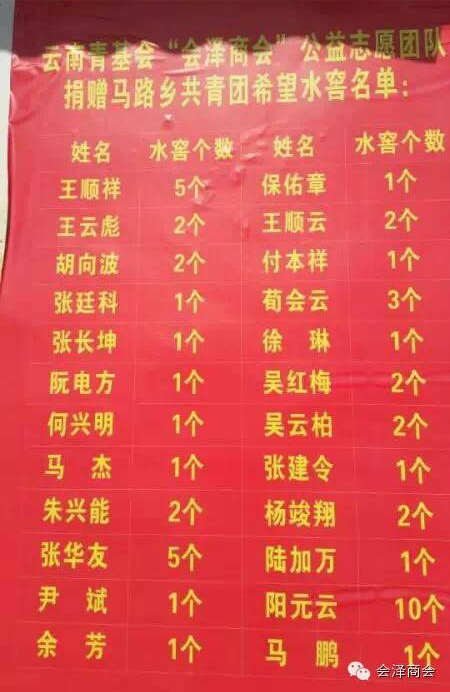 云南青基会“会泽商会”公益志愿团队
捐赠马路乡共青团希望水窖名单：
姓名 水窖个数 姓名 水窖个数
王顺祥 5个 保佑章 1个
王云彪 2个 王顺云 2个
胡向波 2个 付本祥 1个
张廷科 1个 荀会云 3个
张长坤 1个 徐 琳 1个
阮电方 1个 吴红梅 2个
何兴明 1个 吴云柏 2个
马 杰 1个 张建令 1个
朱兴能 2个 杨竣翔 2个
张华友 5个 陆加万 1个
尹 斌 1个 阳元云 10个
余 芳 1个 马 鹏 1个
会泽商会